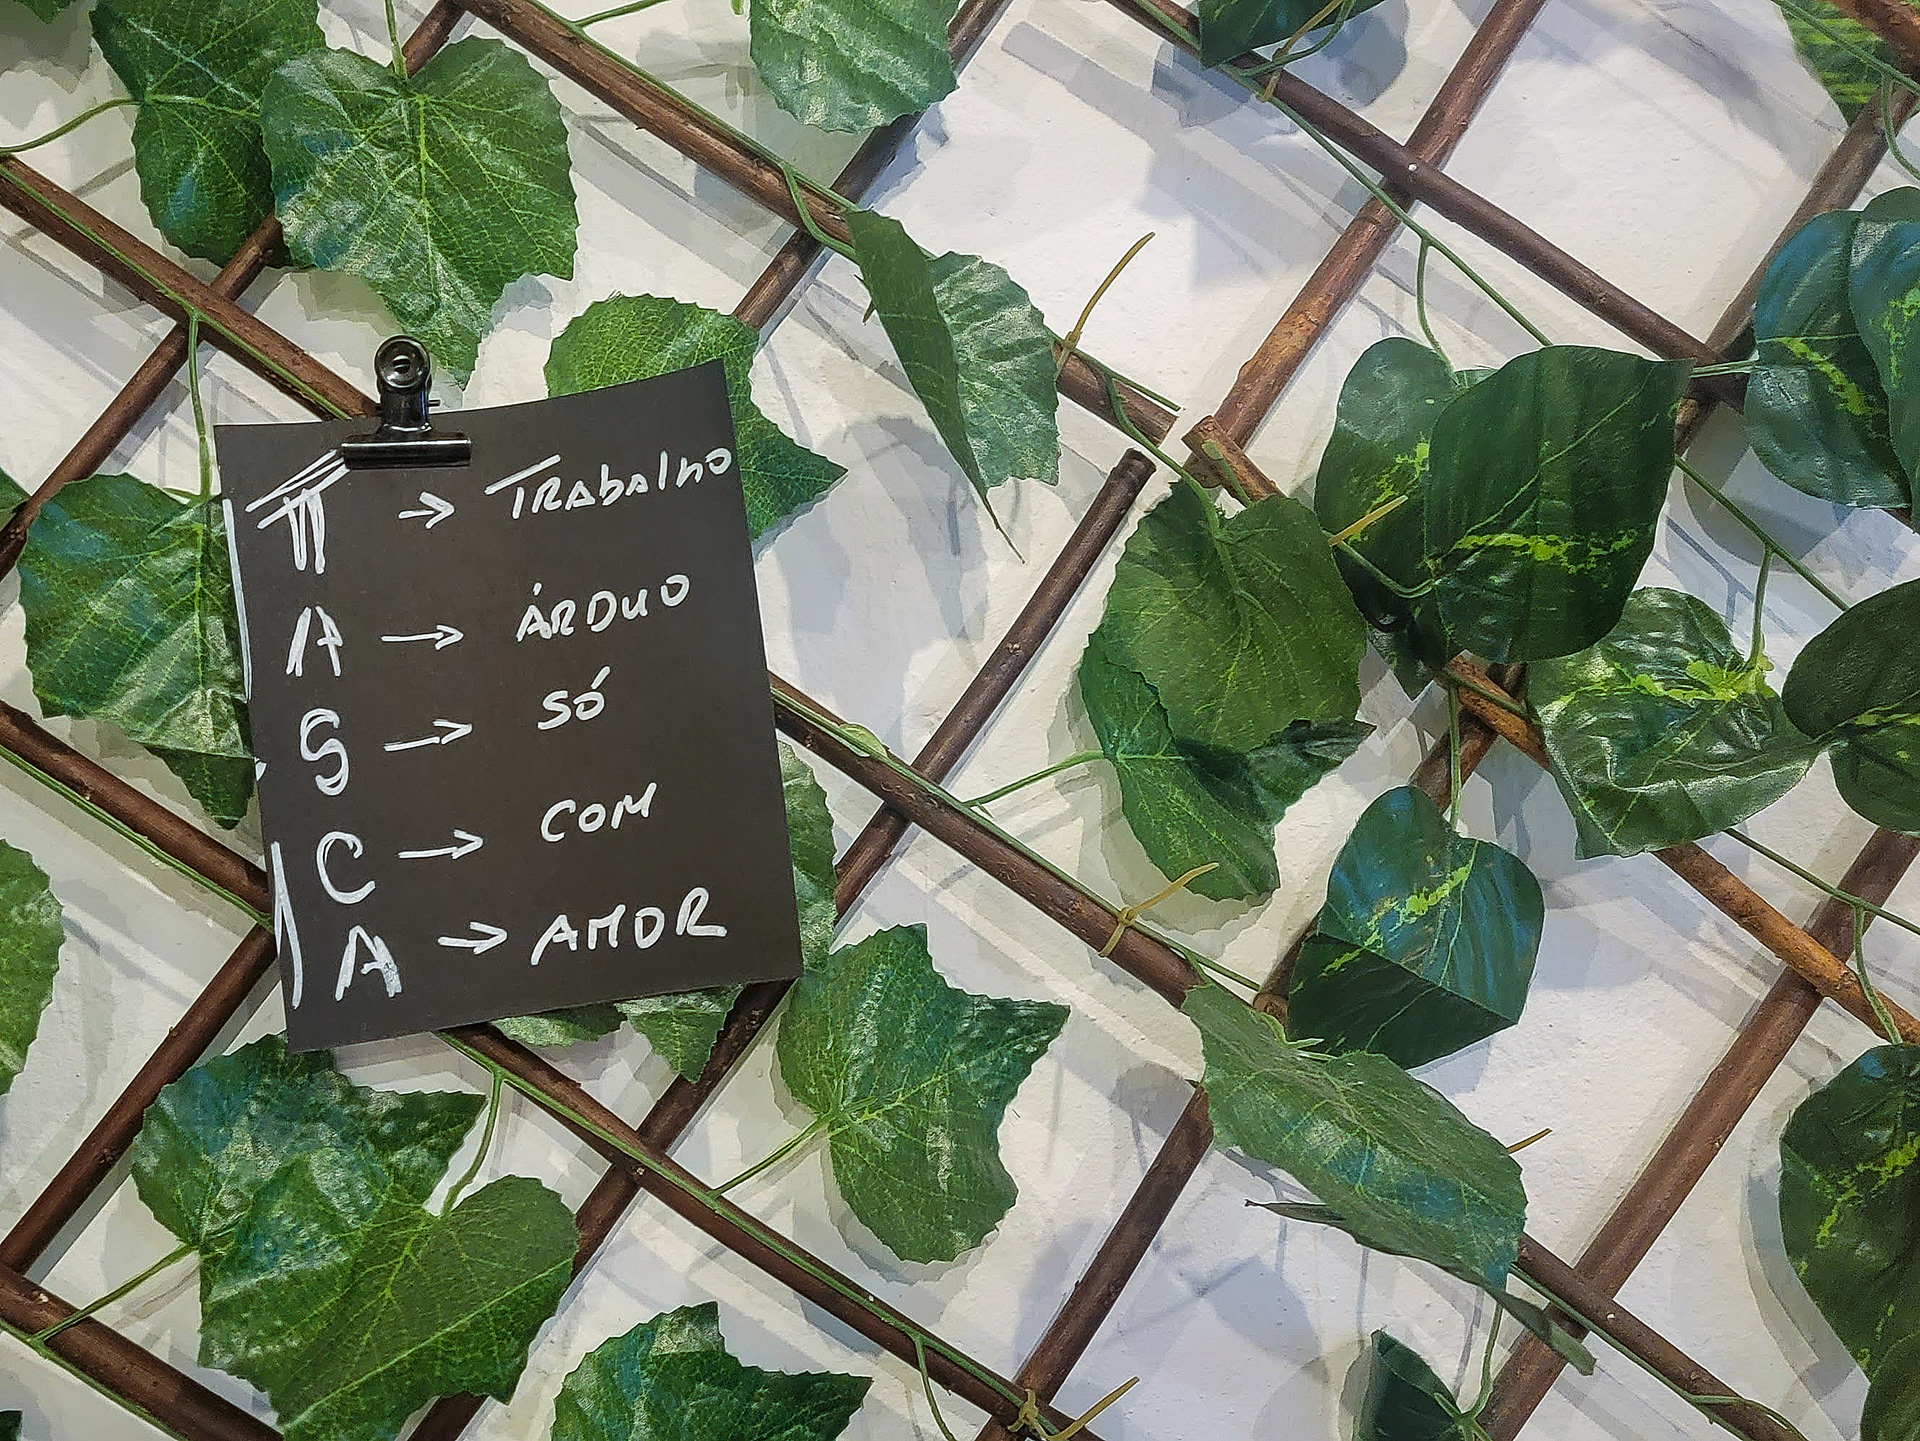 T → TRAbAlho
A → ÁRDUO
S → SÓ
C → COM
A → AMOR